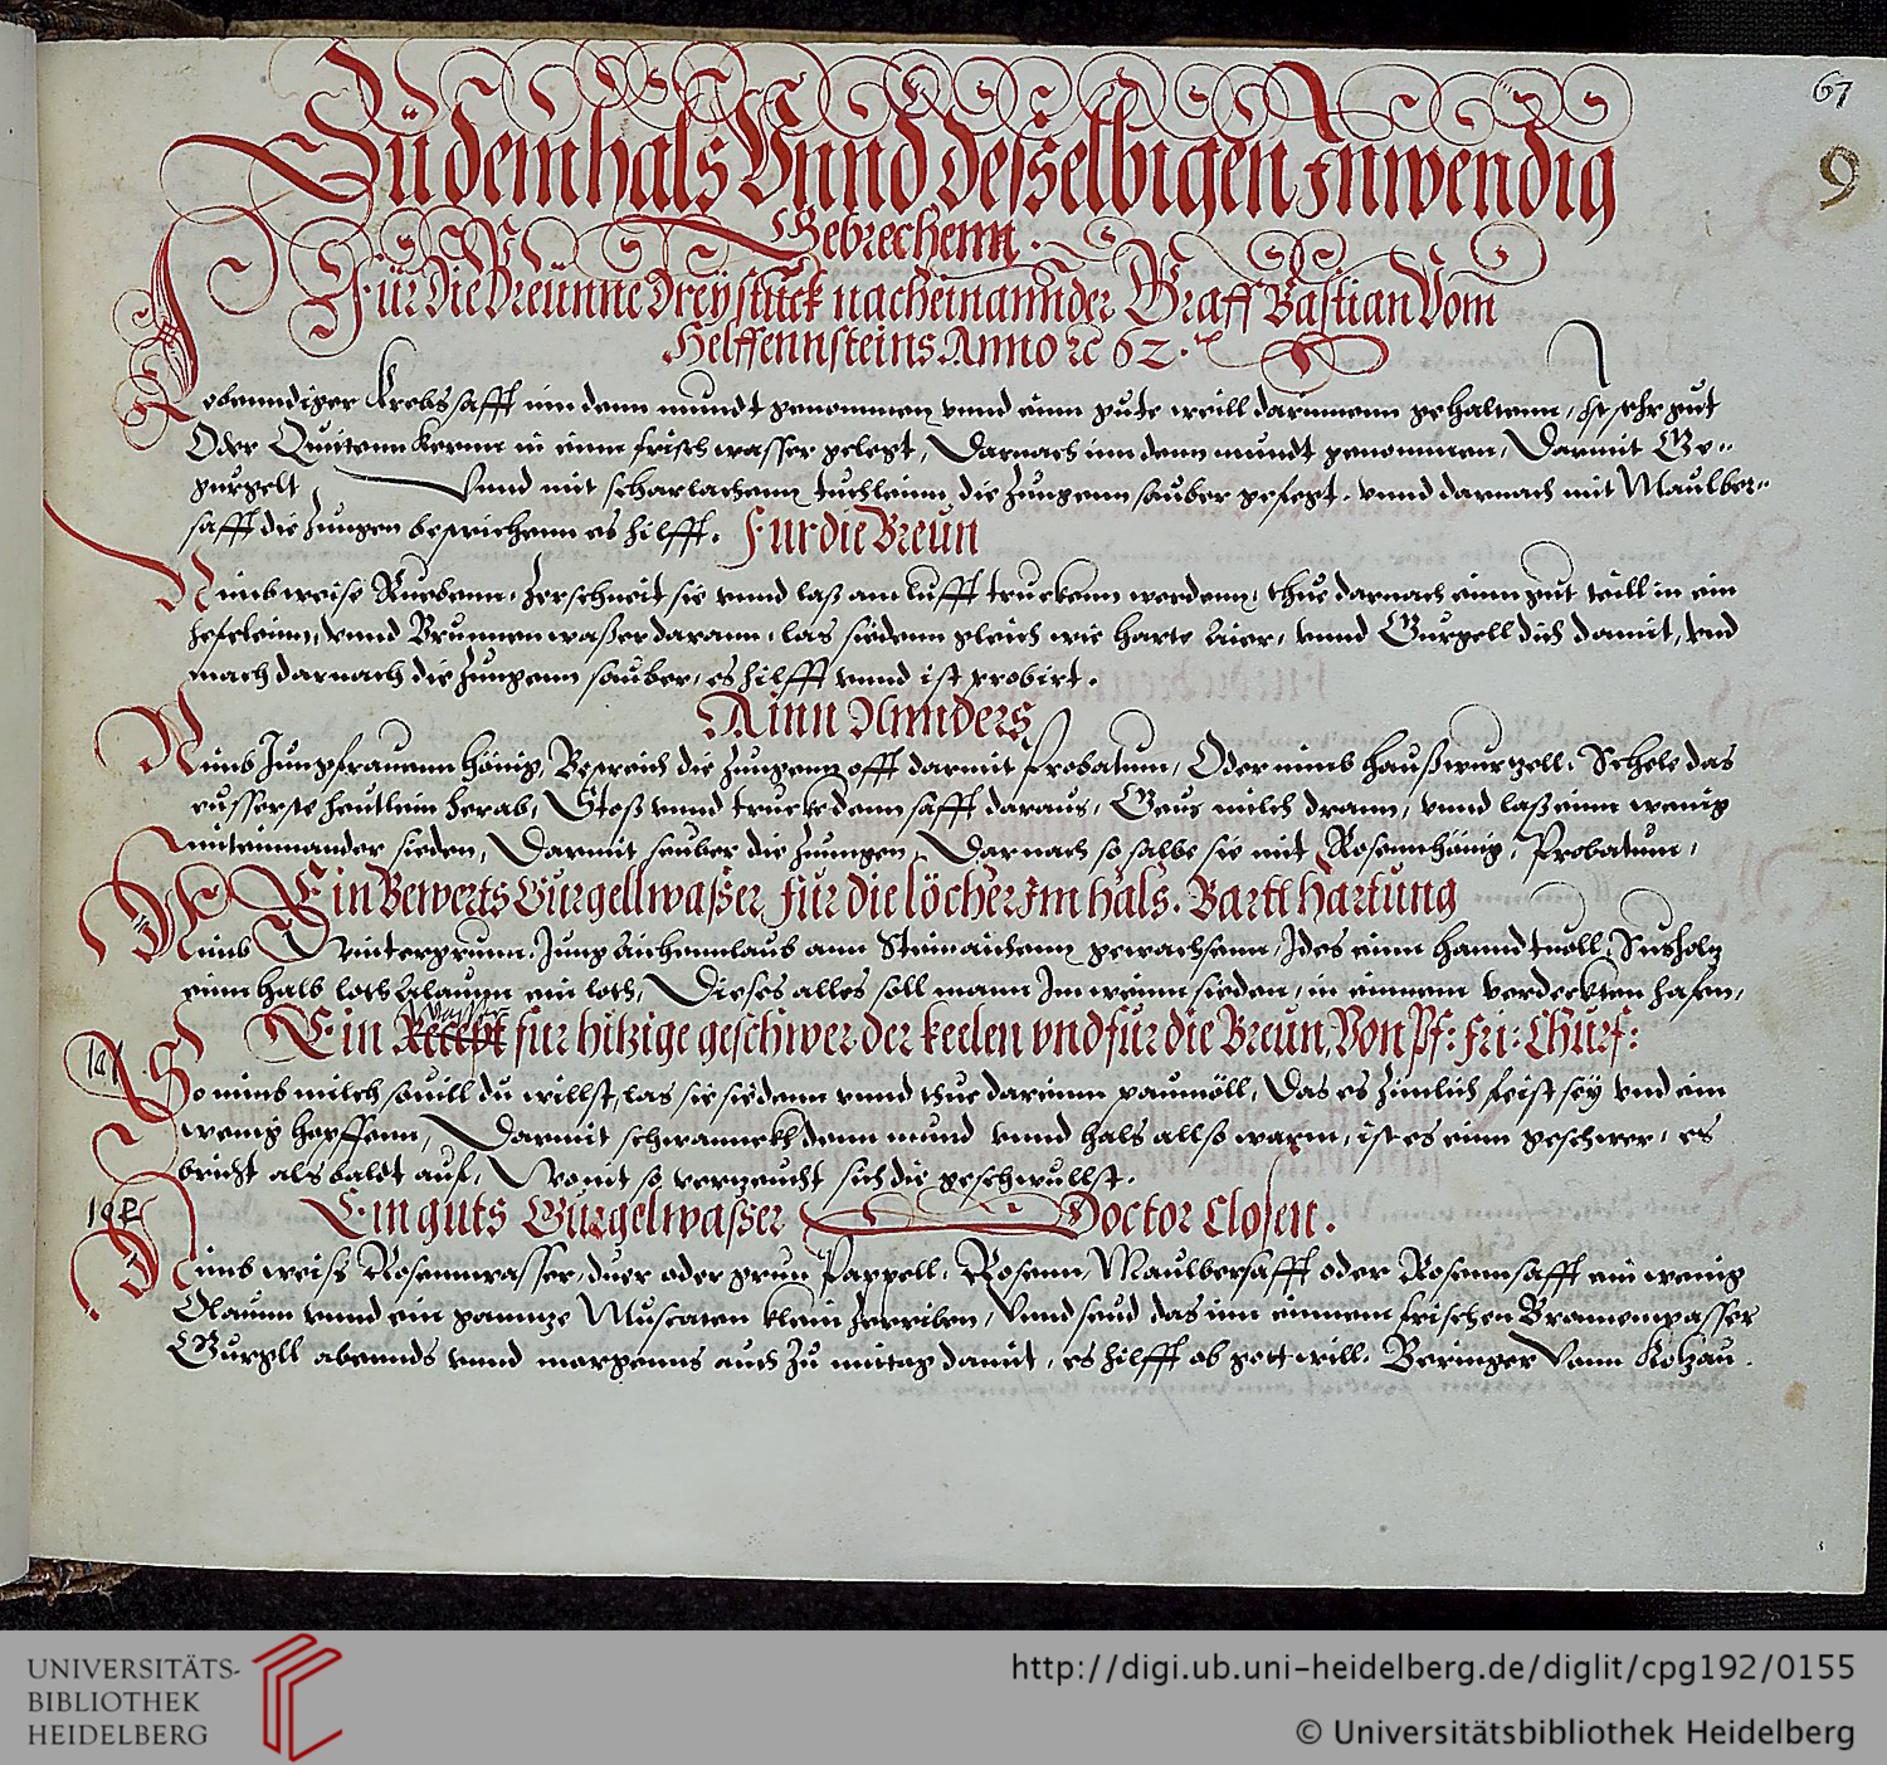 67
9
Zu dem hals Vnnd desselbigen Inwendig
Gebrechenn.
Für die Breünne dreÿ stuck nacheinannder Graff Bastian Vom
Helffennsteins Anno 62.
Lebenndiger Krebssafft inn denn mundt genommen vnnd einn gute weill darinnenn gehaltenn, ist sehr gut
Oder Quitenn kernn in einn frisch wasser gelegt, Darnach inn denn mundt genommen, Darmit Ge-
gurgelt, Vnnd mit scharlachenn tuchleinn die Zungenn sauber gefegt. vnnd darnach mit Maulber-
safft die Zungen bestrichenn es hilfft. Fur die Breun
Nimb weise Ruebenn, Zerschneit sie vnnd laß am lufft truckenn werdenn, thue darnach einn gut teill in ein
hefeleinn, vnnd Brunnenwaßer darann, las siedenn gleich wie harte Aier, vnnd Gurgell dich damit, vnd
mach darnach die Zungenn sauber, es hilfft vnnd ist probirt.
Ainn Annders
Nimb Jungfrauenn hönig, Bestreich die Zungenn offt darmit Probatum, Oder nimb haußwurtzell, Schele das
eusserste heutlein herab, Stoß vnnd trucke denn safft daraus, Geus milch drann, vnnd laß einn wenig
miteinnander sieden, Darmit seuber die Zungen, Darnach so salbe sie mit Rosennhönig, Probatum,
Ein Bewerts Gurgellwaßer für die löcher Im hals. Bartt Hartung
Nimb Wintergrunn, Jung Aichennlaub ann Steinaichenn gewachsenn, Jdes einn hanndtvoll, Susholtz
einn halb loth Alaunn ein loth, Dieses alles soll mann Im weinn sieden, in einnem verdeckten hafen,
Wasser
Ein Recept fur hitzige geschwer der keelen vnd für die Breun, Von Pf: Fri: Churf:
191.
So nimb milch souill du willst, las sie siedenn vnnd thue darinnn paumöll, Das es Zimlich feist seÿ vnd ein
wenig hopffenn, Darmit schwannckh denn mund vnnd hals allso warm, ist es einn geschwer, es
bricht als baldt auf, Womit so verzeucht sich die geschwullst.
192
Ein guts Gurgelwaßer Doctor Closen.
Nimb weiss Rosennwasser, duer oder grun Pappell, Rosenn, Maulbersafft oder Rosennsafft ein wenig
Olaunn vnnd ein gannze Muscaten klein Zerriben, Vnnd seud das inn einnem frischen Bronnenwasser
Gurgll abennds vnnd morgenns auch Zu mittag damit, es hilfft ob gott will. Beringer Vonn Kotzau.
UNIVERSITÄTS-
BIBLIOTHEK
HEIDELBERG
http://digi.ub.uni-heidelberg.de/diglit/cpg192/0155
© Universitätsbibliothek Heidelberg